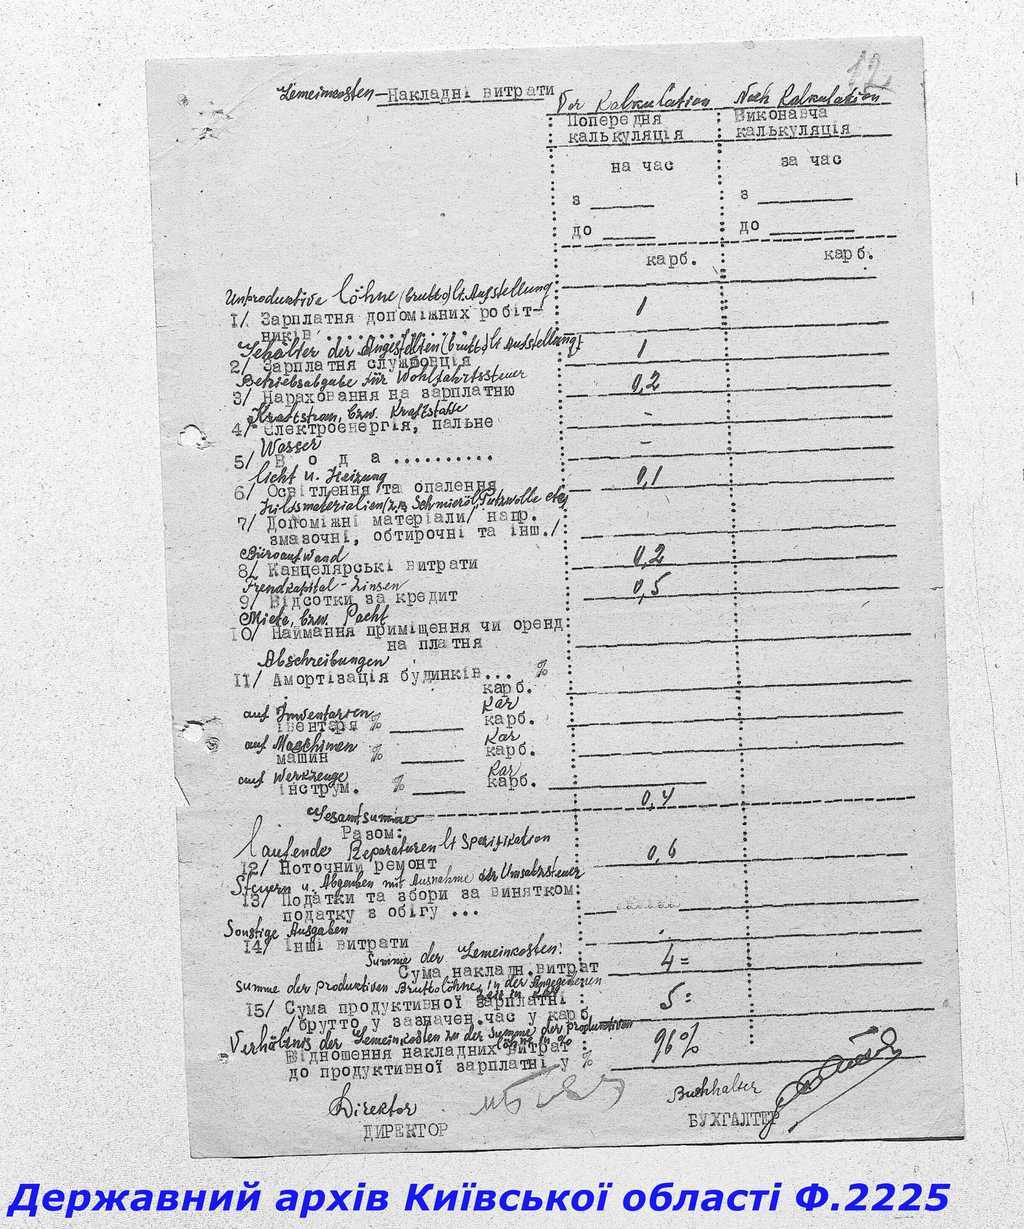 12
Gemeinkosten – Накладні витрати
Vor Kalkulation Nach Kalkulation
Попередня калькуляція
Виконавча калькуляція
на час за час
з ______ з ______
до ______ до ______
карб. карб.
Unproduktive Löhne (brutto) lt. Aufstellung
1/ Зарплатня допоміжних робіт-
ників ............. 1
Gehälter der Angestellten (brutto) lt Aufstellung
2/ Зарплатня службовця 1
Betriebsabgabe für Wohlfahrtssteuer
3/ Нараховання на зарплатню 0,2
Kraftstrom, bzw. Kraftstoffe
4/ Електроенергія, пальне -
Wasser
5/ В о д а .......... -
Licht u. Heizung
6/ Освітлення та опалення 0,1
Hilfsmaterialien (z.B. Schmieröl, Putzwolle etc)
7/ Допоміжні матеріали/ напр.
змазочні, обтирочні та інш./
Büroaufwand
8/ Канцелярські витрати 0,2
Fremdkapital - Zinsen
9/ Відсотки за кредит 0,5
Miete, bzw. Pacht
10/ Наймання приміщення чи оренд
на платня
Abschreibungen
11/ Амортізація будинків... %
карб.
auf Inventarien Kar
івентаря % ______ карб.
auf Maschinen Kar
машин % ______ карб.
auf Werkzeuge Kar
інструм. % ______ карб. ______
0,4
Gesamtsumme
Разом:
laufende Reparaturen lt Spezifikation
12/ Поточний ремонт 0,6
Steuern u. Abgaben mit Ausnahme der Umsatzsteuer
13/ Податки та збори за винятком
податку з обігу ...
Sonstige Ausgaben
14/ Інші витрати -
Summe der Gemeinkosten:
Сума накладн.витрат 4=
Summe der produktiven Bruttolöhne in der angegebenen
15/ Сума продуктивної зарплатні
брутто у зазначен.час у карб. 5=
Verhältnis der Gemeinkosten zu der Summe der produktiven
Löhne in %
Відношення накладних витрат
до продуктивної зарплатні у % 96%
Direktor Buchhalter
ДИРЕКТОР БУХГАЛТЕР
Державний архів Київської області Ф.2225